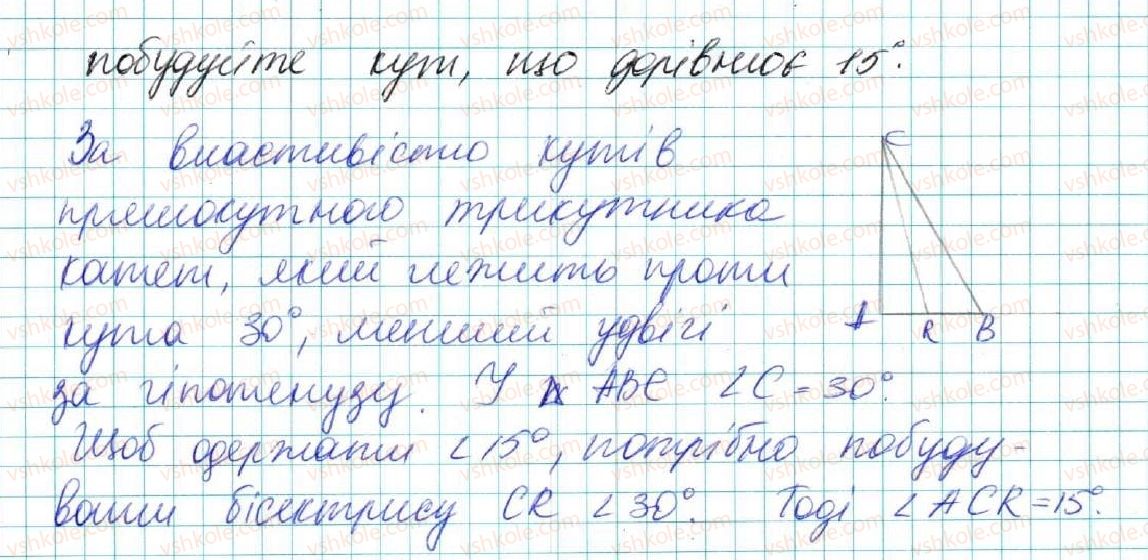 побудуйте кут, що дорівнює 15°.
За властивістю кутів
прямокутного трикутника
катет, який лежить проти
кута 30°, менший удвічі
за гіпотенузу. У △ ABC ∠C = 30°.
Щоб одержати ∠15°, потрібно побуду-
вати бісектрису CR ∠30°. Тоді ∠ACR = 15°.
C
A R B
vshkole.com